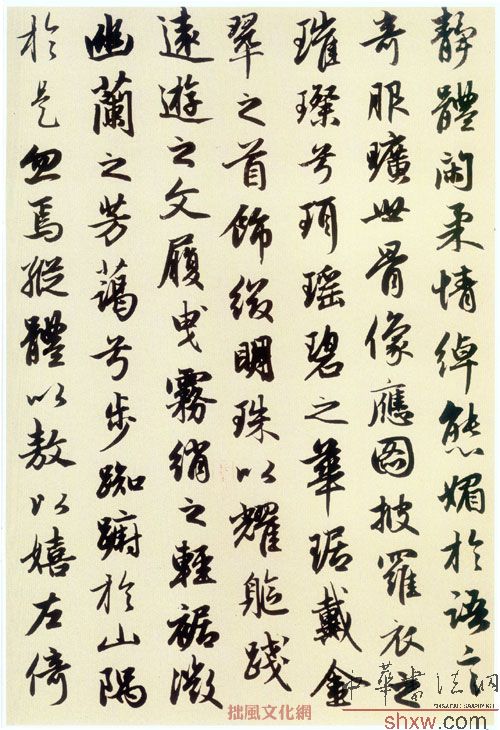 靜體閑柔情綽態媚於語言
奇服曠世骨像應圖披羅衣之
璀璨兮珥瑤碧之華琚戴金
翠之首飾綴明珠以耀軀踐
遠遊之文履曳霧綃之輕裾微
幽蘭之芳藹兮步踟躕於山隅
於是忽焉縱體以敖以嬉左倚
拙風文化網
中華書法网
shxw.com